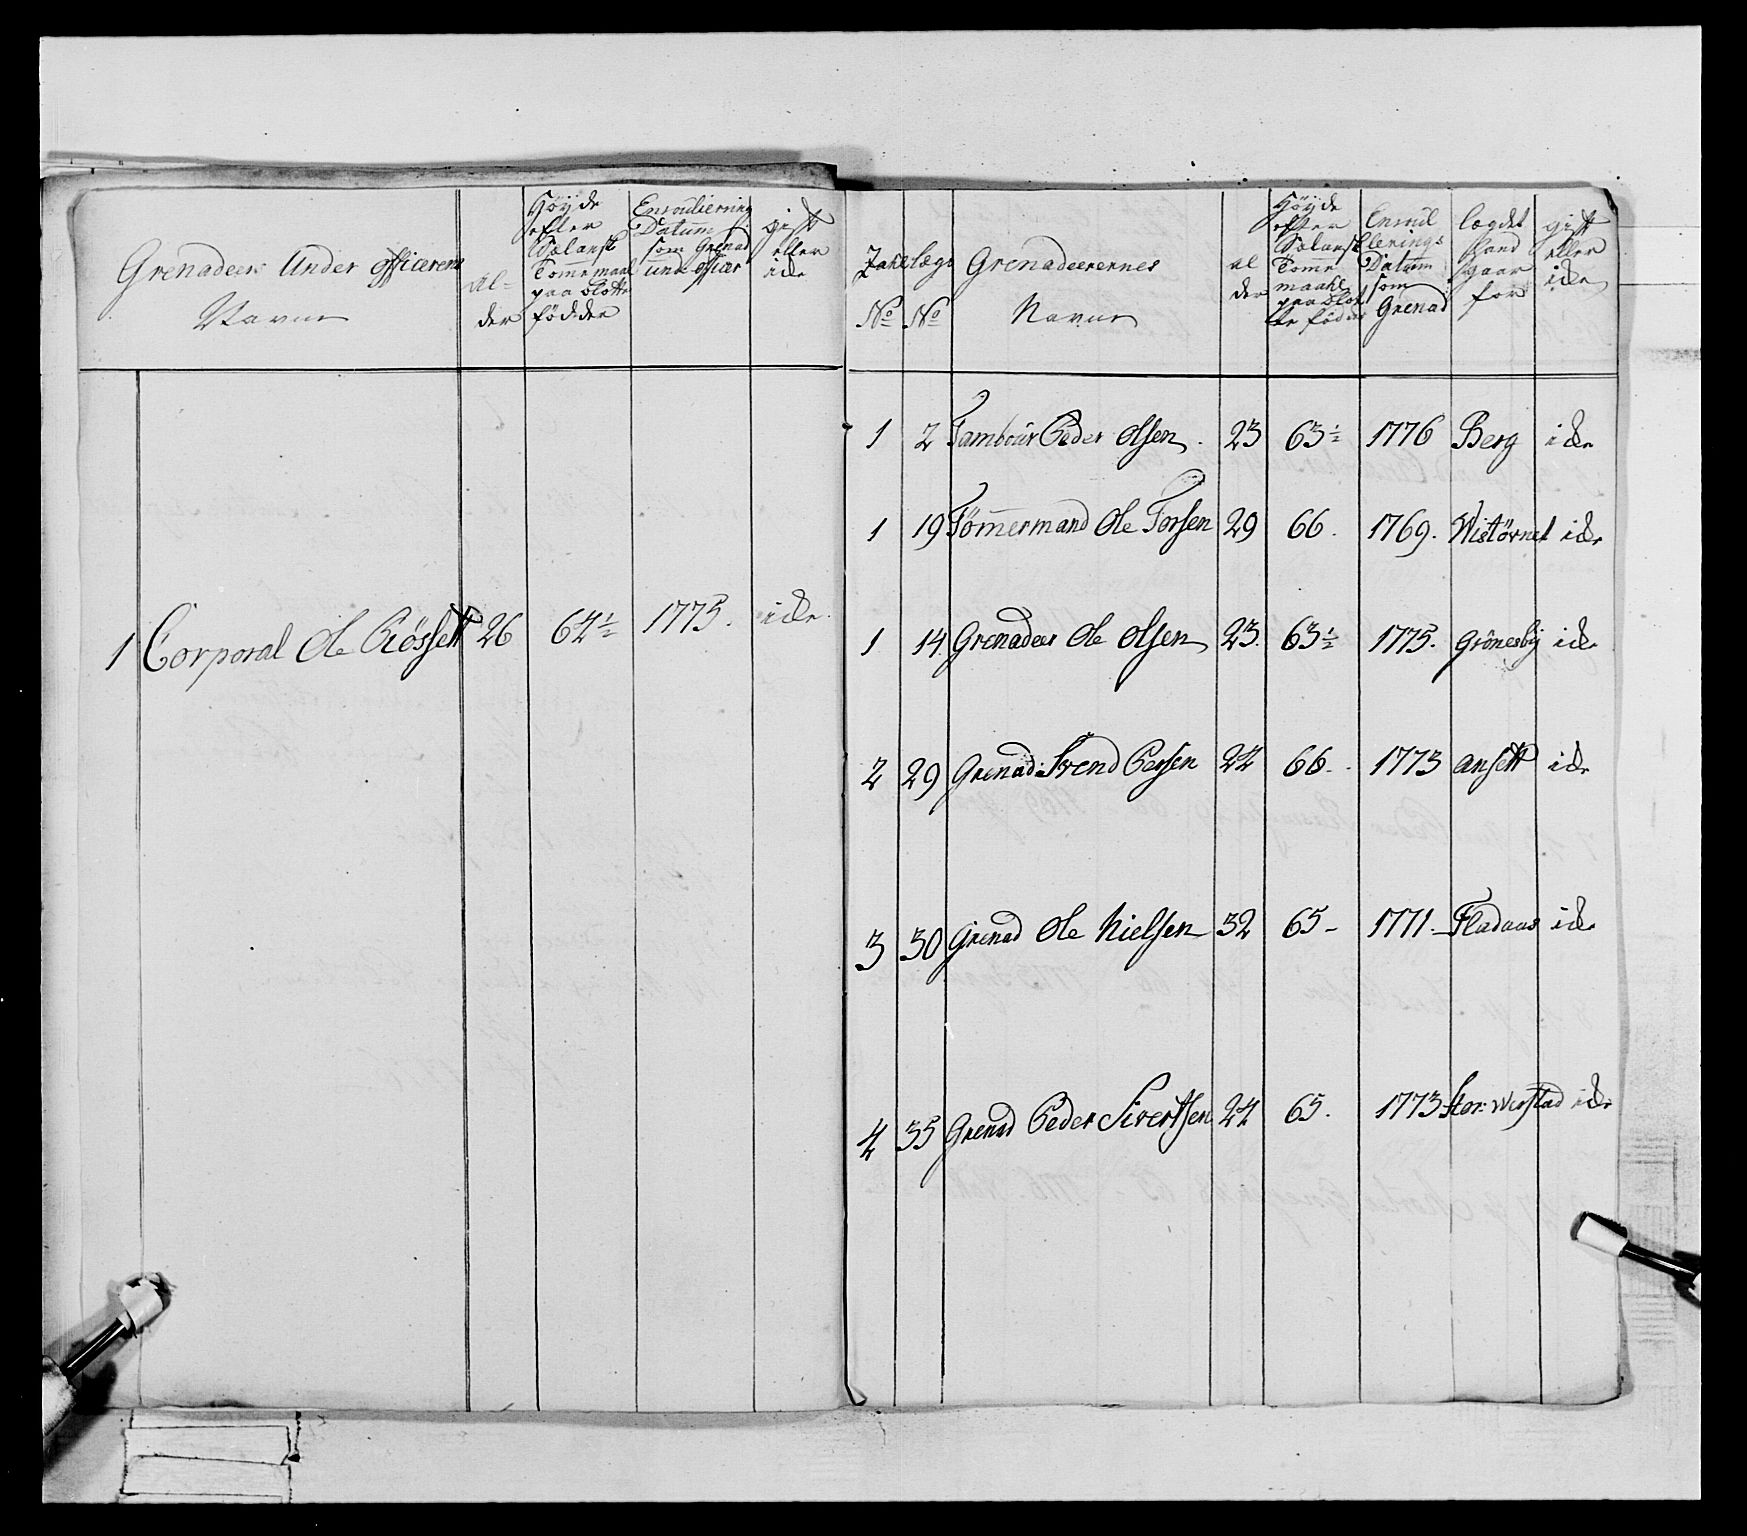 Grenadeer Under Officerens
Navne
Al-
der
Höyde
efter
Sælansk
Tommemaal
paa blotte
födder
Enroulierings
Datum
som Grenad
und officer
gift
eller
icke
1 Corporal Ole Rössett 26 64½ 1775. icke
Zahl
No
lægs
No
Grenadeerernes
Navne
al
der
Höyde
efter
Sælansk
Tomme
maahl
paa blot
te föder
Enroul
lerings
Datum
som
Grenad
lægdet
hand
gaar
for
gift
eller
icke
1 2 Tambour Peder Olsen. 23 63½ 1776 Berg icke
1 19 Tömmermand Ole Torsen 29 66. 1769. Wistörnet icke
1 14 Grenadeer Ole Olsen 23. 63½ 1775. Grönesby icke
2 29 Grenad: Svend Persen 24 66. 1773 Ansett icke
3 30 Grenad Ole Nielsen 32 65- 1771. Fladaas icke
4 35 Grenad Peder Sivertsen 24 65. 1773 Stor: Werstad icke